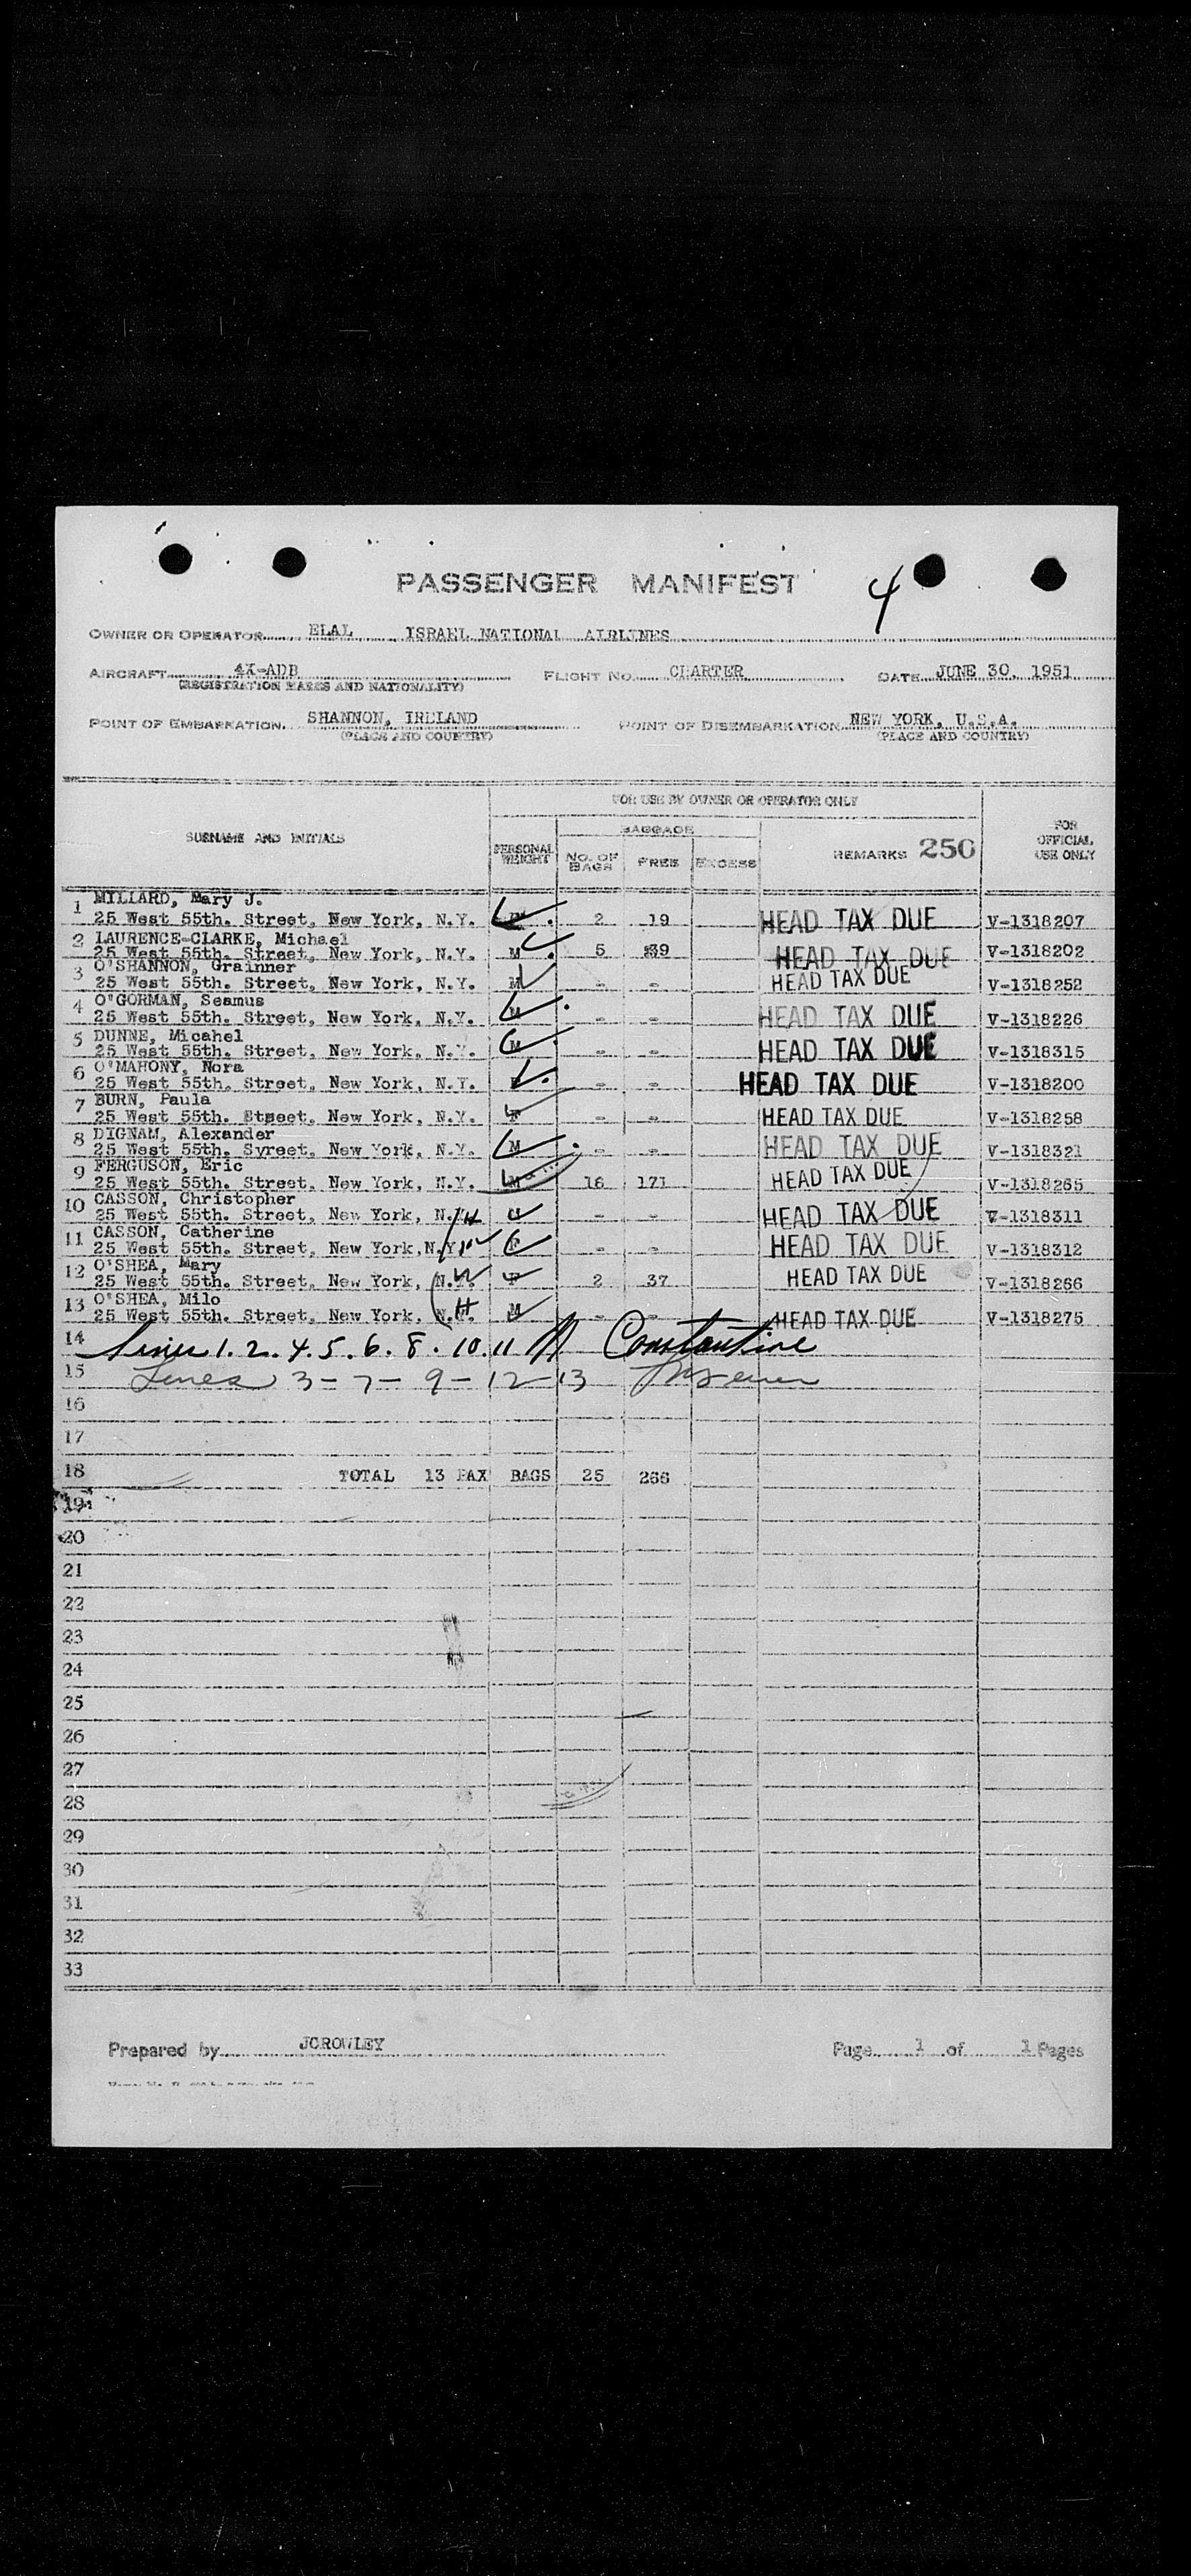 4
PASSENGER MANIFEST
OWNER OR OPERATOR ELAL ISRAEL NATIONAL AIRLINES
AIRCRAFT 4X-ADB FLIGHT NO. CHARTER DATE JUNE 30. 1951
(REGISTRATION MARKS AND NATIONALITY)
POINT OF EMBARKATION. SHANNON, IRELAND POINT OF DISEMBARKATION NEW YORK, U.S.A.
(PLACE AND COUNTRY) (PLACE AND COUNTRY)
FOR USE BY OWNER OR OPERATOR ONLY
SURNAME AND INITIALS PERSONAL WEIGHT BAGGAGE NO. OF BAGS FREE EXCESS REMARKS 250 FOR OFFICIAL USE ONLY
1 MILLARD, Mary J.
25 West 55th. Street, New York, N.Y. 2 19 HEAD TAX DUE V-1318207
2 LAURENCE-CLARKE, Michael
25 West 55th. Street, New York, N.Y. M 5 39 HEAD TAX DUE V-1318202
3 O'SHANNON, Grainner
25 West 55th. Street, New York, N.Y. M - - HEAD TAX DUE V-1318252
4 O'GORMAN, Seamus
25 West 55th. Street, New York, N.Y. M - - HEAD TAX DUE V-1318226
5 DUNNE, Micahel
25 West 55th. Street, New York, N.Y. M - - HEAD TAX DUE V-1318315
6 O'MAHONY, Nora
25 West 55th. Street, New York, N.Y. - - HEAD TAX DUE V-1318200
7 BURN, Paula
25 West 55th. Street, New York, N.Y. F - - HEAD TAX DUE V-1318258
8 DIGNAM, Alexander
25 West 55th. Syreet, New York, N.Y. M - - HEAD TAX DUE V-1318321
9 FERGUSON, Eric
25 West 55th. Street, New York, N.Y. M 16 171 HEAD TAX DUE V-1318265
10 CASSON, Christopher
25 West 55th. Street, New York, N.Y. H - - HEAD TAX DUE V-1318311
11 CASSON, Catherine
25 West 55th. Street, New York, N.Y. W F - - HEAD TAX DUE V-1318312
12 O'SHEA, Mary
25 West 55th. Street, New York, N.Y. W F 2 37 HEAD TAX DUE V-1318266
13 O'SHEA, Milo
25 West 55th. Street, New York, N.Y. H M - - HEAD TAX DUE V-1318275
14 Lines 1. 2. 4. 5. 6. 8. 10. 11 Constantine
15 Lines 3 - 7 - 9 - 12 - 13
16
17
18 TOTAL 13 PAX BAGS 25 266
19
20
21
22
23
24
25
26
27
28
29
30
31
32
33
Prepared by JCROWLEY Page 1 of 1 Pages